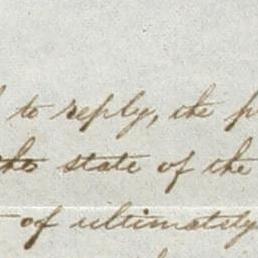 to reply, the
the state of the
of ultimately